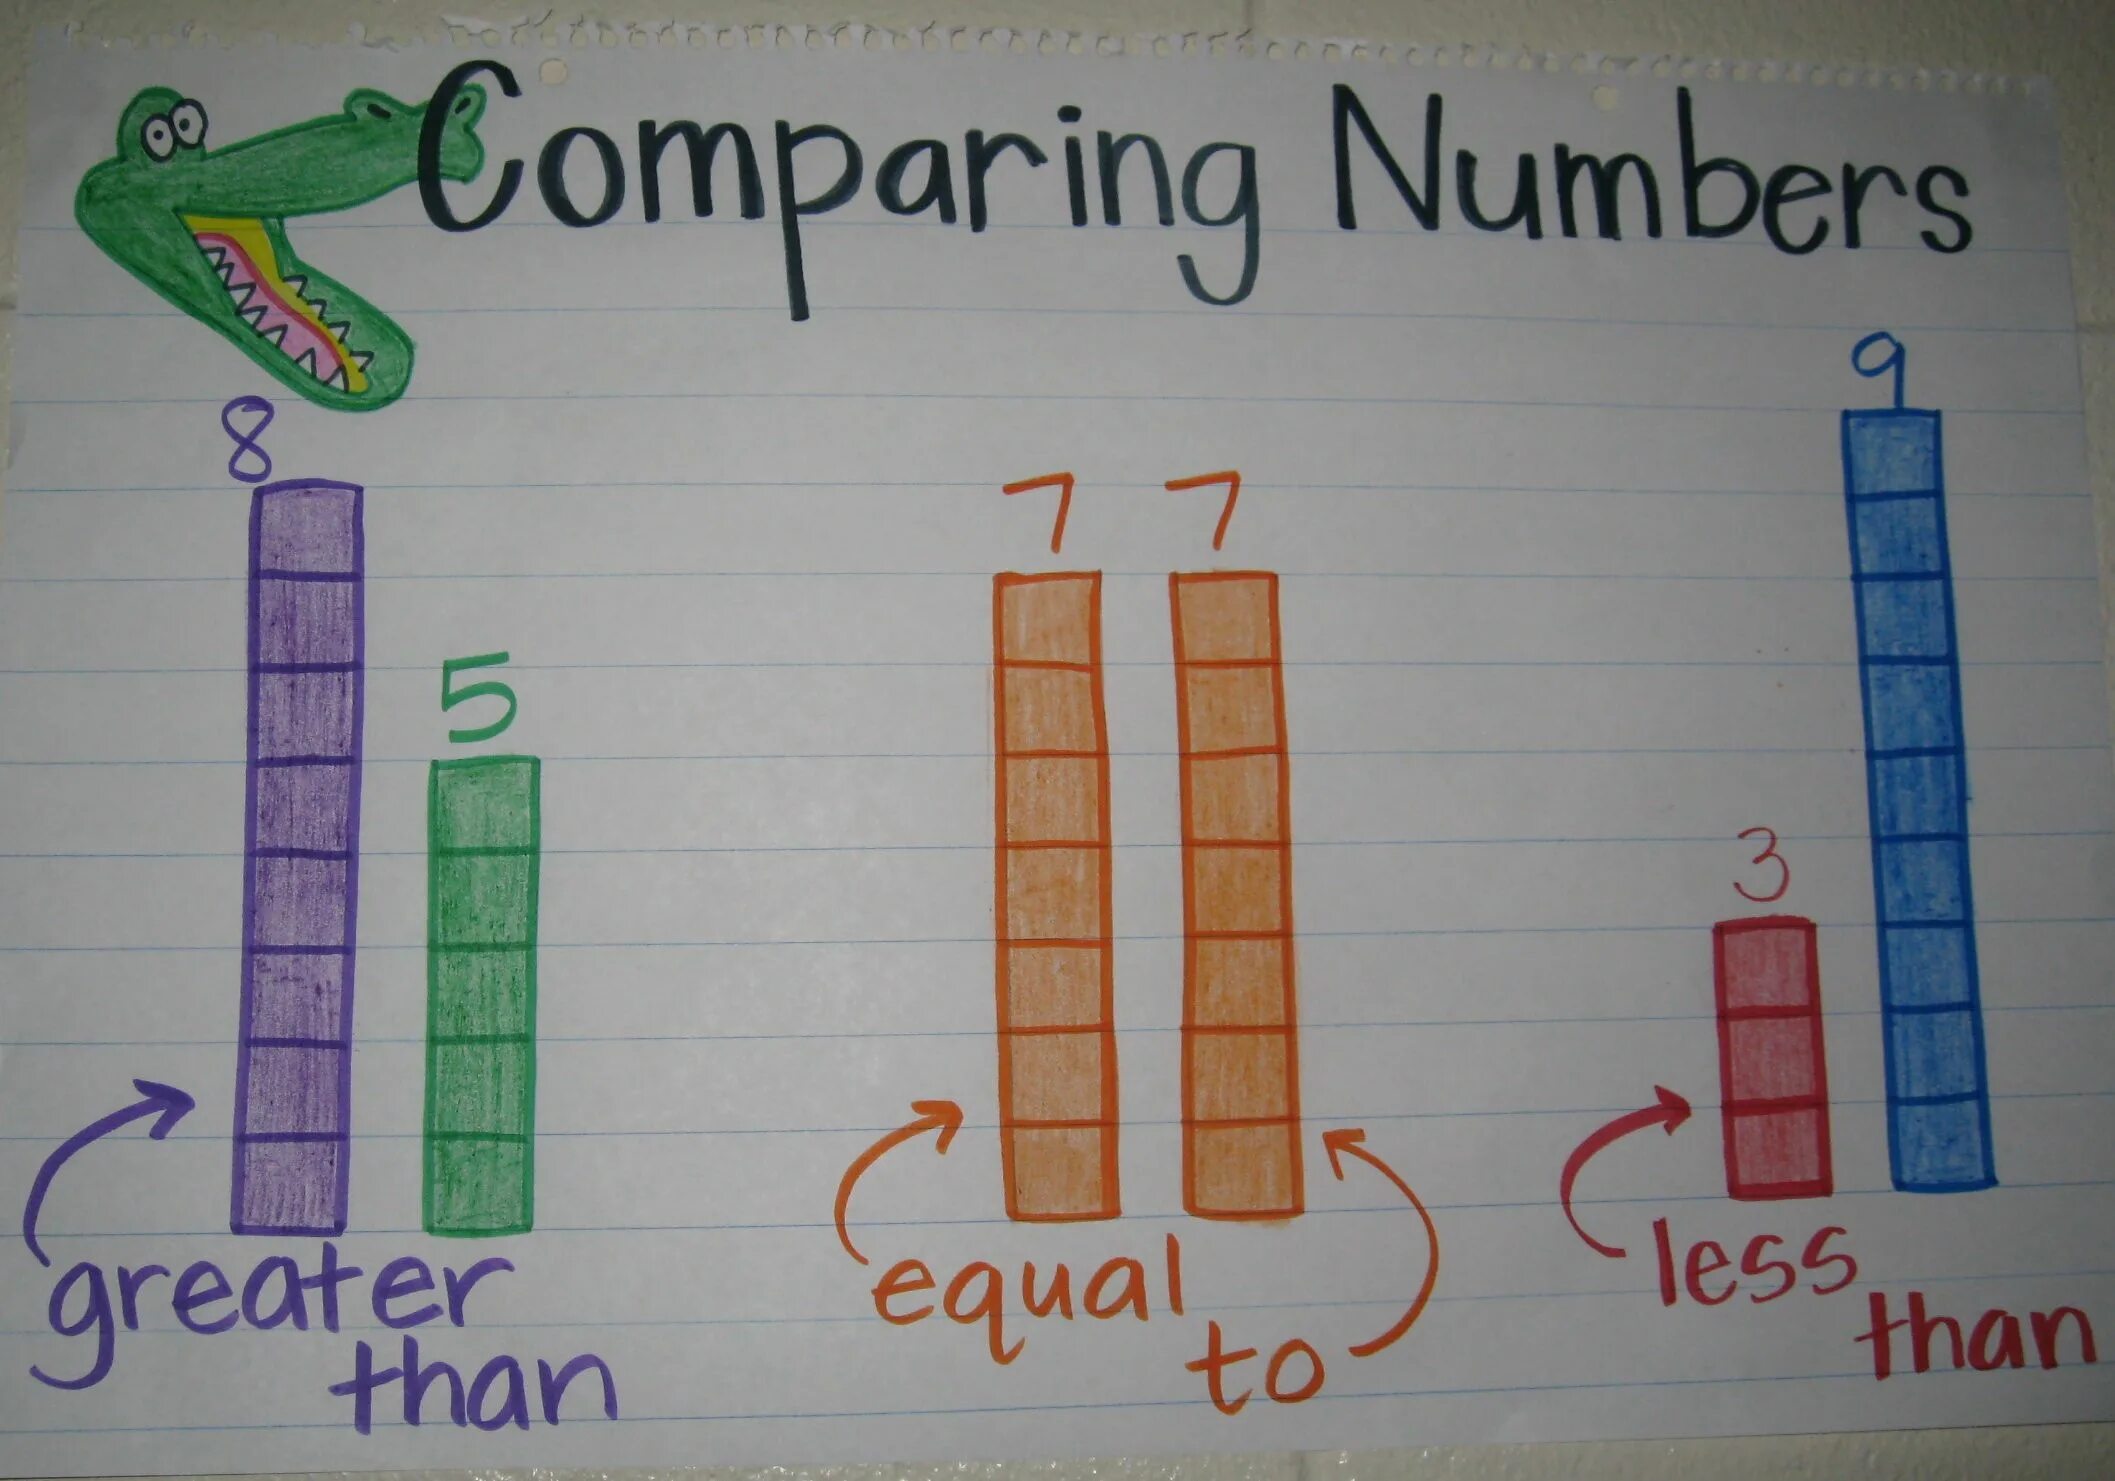 Comparing Numbers
8 5
7 7
3 9
greater than
equal to
less than